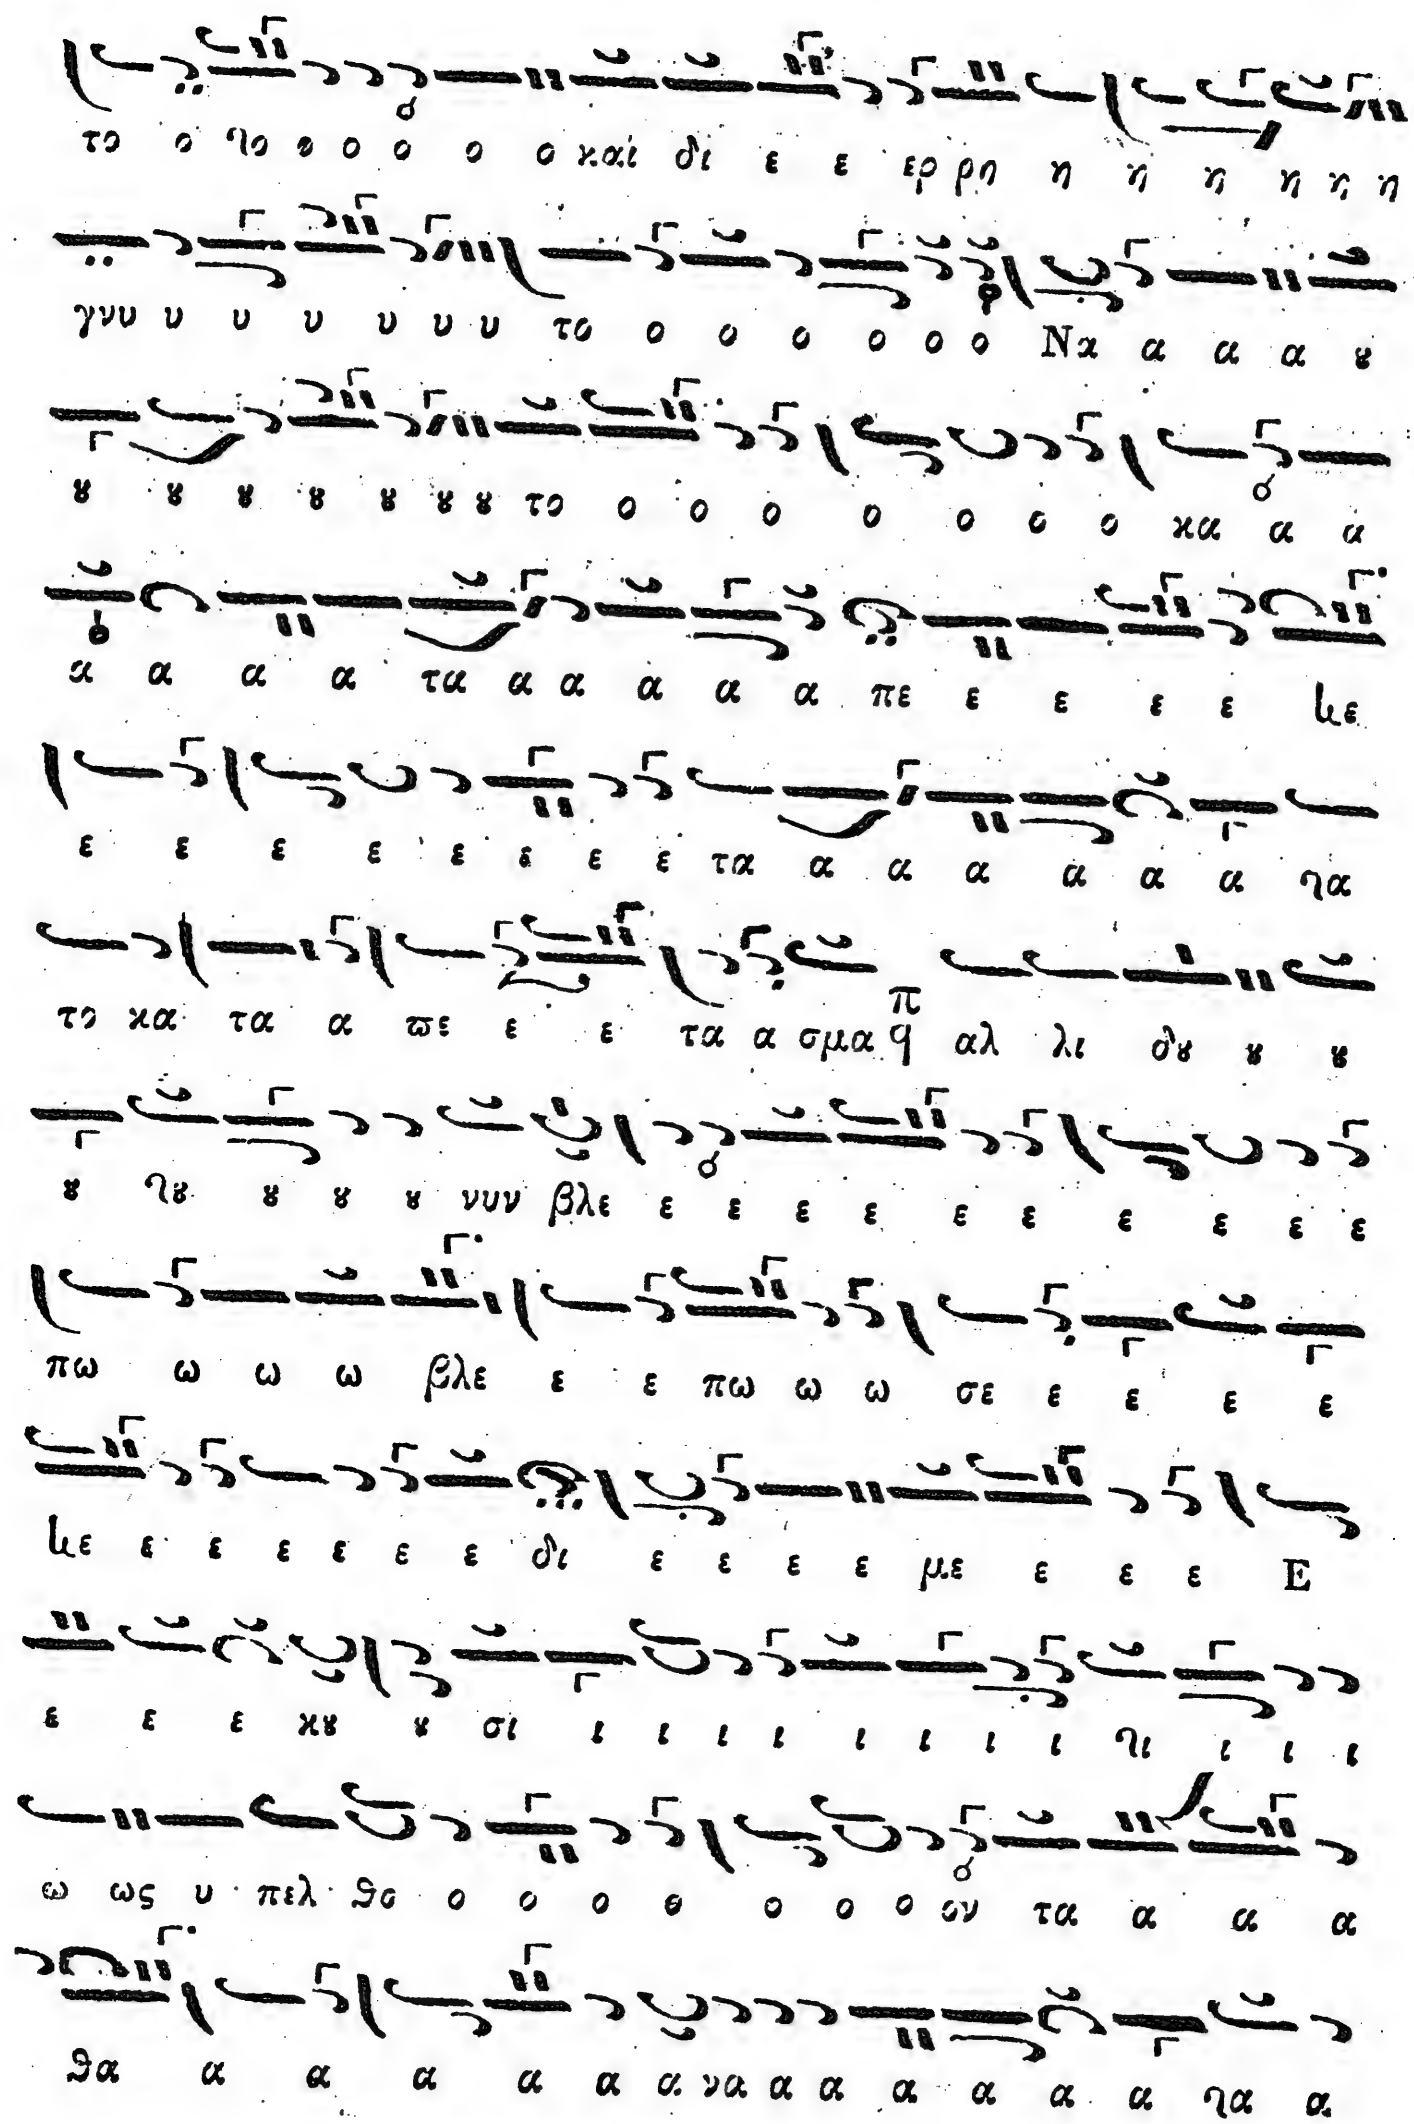 το ο ϟο ο ο ο ο ο και δι ε ε ερ ρη η η η η η η
γνυ υ υ υ υ υ υ το ο ο ο ο ο ο Να α α α ȣ
ȣ ȣ ȣ ȣ ȣ ȣ ȣ το ο ο ο ο ο ο ο κα α α
α α α α τα α α α α α πε ε ε ε ε ε
ε ε ε ε ε ε ε ε τα α α α α α α ϟα
το κα τα α ϖε ε ε τα α σμα π q αλ λι δȣ ȣ ȣ
ȣ ϟȣ ȣ ȣ ȣ νυν βλε ε ε ε ε ε ε ε ε ε ε
πω ω ω ω βλε ε ε πω ω ω σε ε ε ε ε
ε ε ε ε ε ε ε δι ε ε ε ε με ε ε ε Ε
ε ε ε κȣ ȣ σι ι ι ι ι ι ι ι ι ϟι ι ι ι
ω ως υ πελ θο ο ο ο ο ο ο ο ον τα α α α
θα α α α α α α να α α α α α α ϟα α